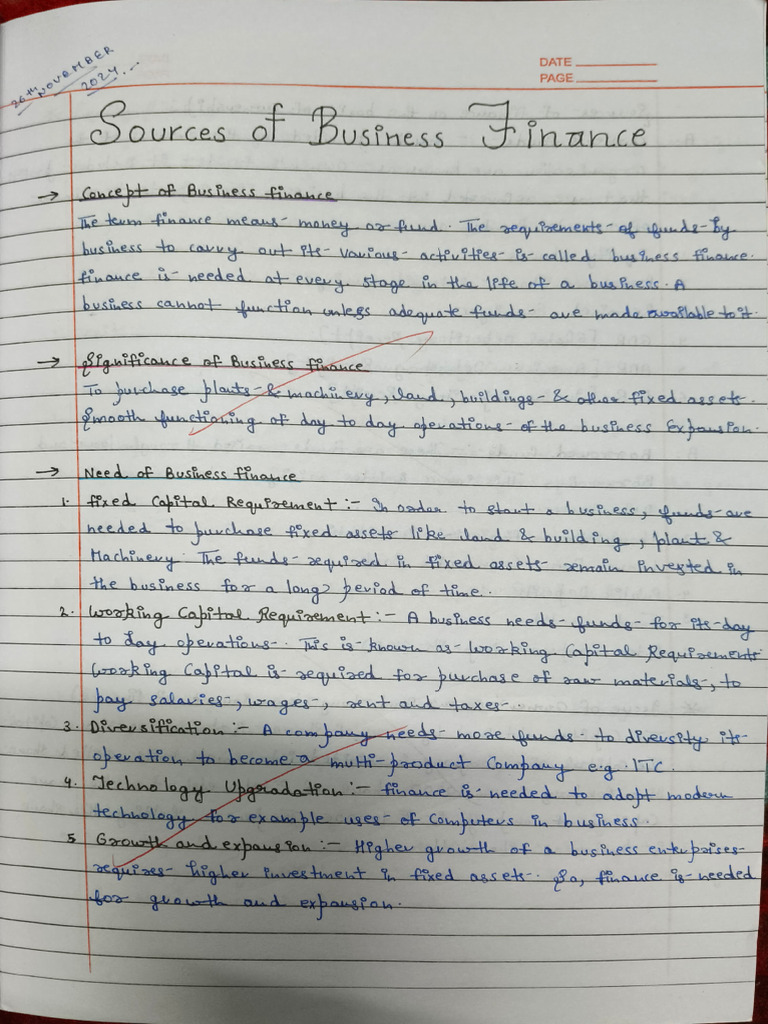 26th NOVEMBER
2024...
DATE
PAGE
Sources of Business Finance
→ Concept of Business finance
The term finance means money or fund. The requirements of funds by
business to carry out its various activities is called business finance.
finance is needed at every stage in the life of a business. A
business cannot function unless adequate funds are made available to it.
→ Significance of Business finance
To purchase plants & machinery, land, buildings & other fixed assets.
Smooth functioning of day to day operations of the business Expansion.
→ Need of Business finance
1. fixed Capital Requirement :- In order to start a business, funds are
needed to purchase fixed assets like land & building, plant &
Machinery. The funds required in fixed assets remain invested in
the business for a long period of time.
2. Working Capital Requirement :- A business needs funds for its day
to day operations. This is known as Working Capital Requirements
Working Capital is required for purchase of raw materials, to
pay salaries, wages, rent and taxes.
3. Diversification :- A company needs more funds to diversity its
operation to become a multi-product Company e.g. ITC.
4. Technology Upgradation :- finance is needed to adopt modern
technology for example uses of Computers in business.
5 Growth and expansion :- Higher growth of a business enterprises
requires higher investment in fixed assets. So, finance is needed
for growth and expansion.